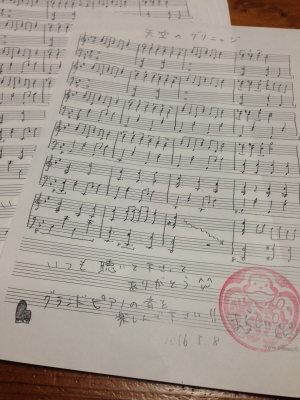 天空のグリニッジ
いつも聴いて下さって
ありがとう
グランドピアノの音を
楽しんで下さい!!
2016 5 8